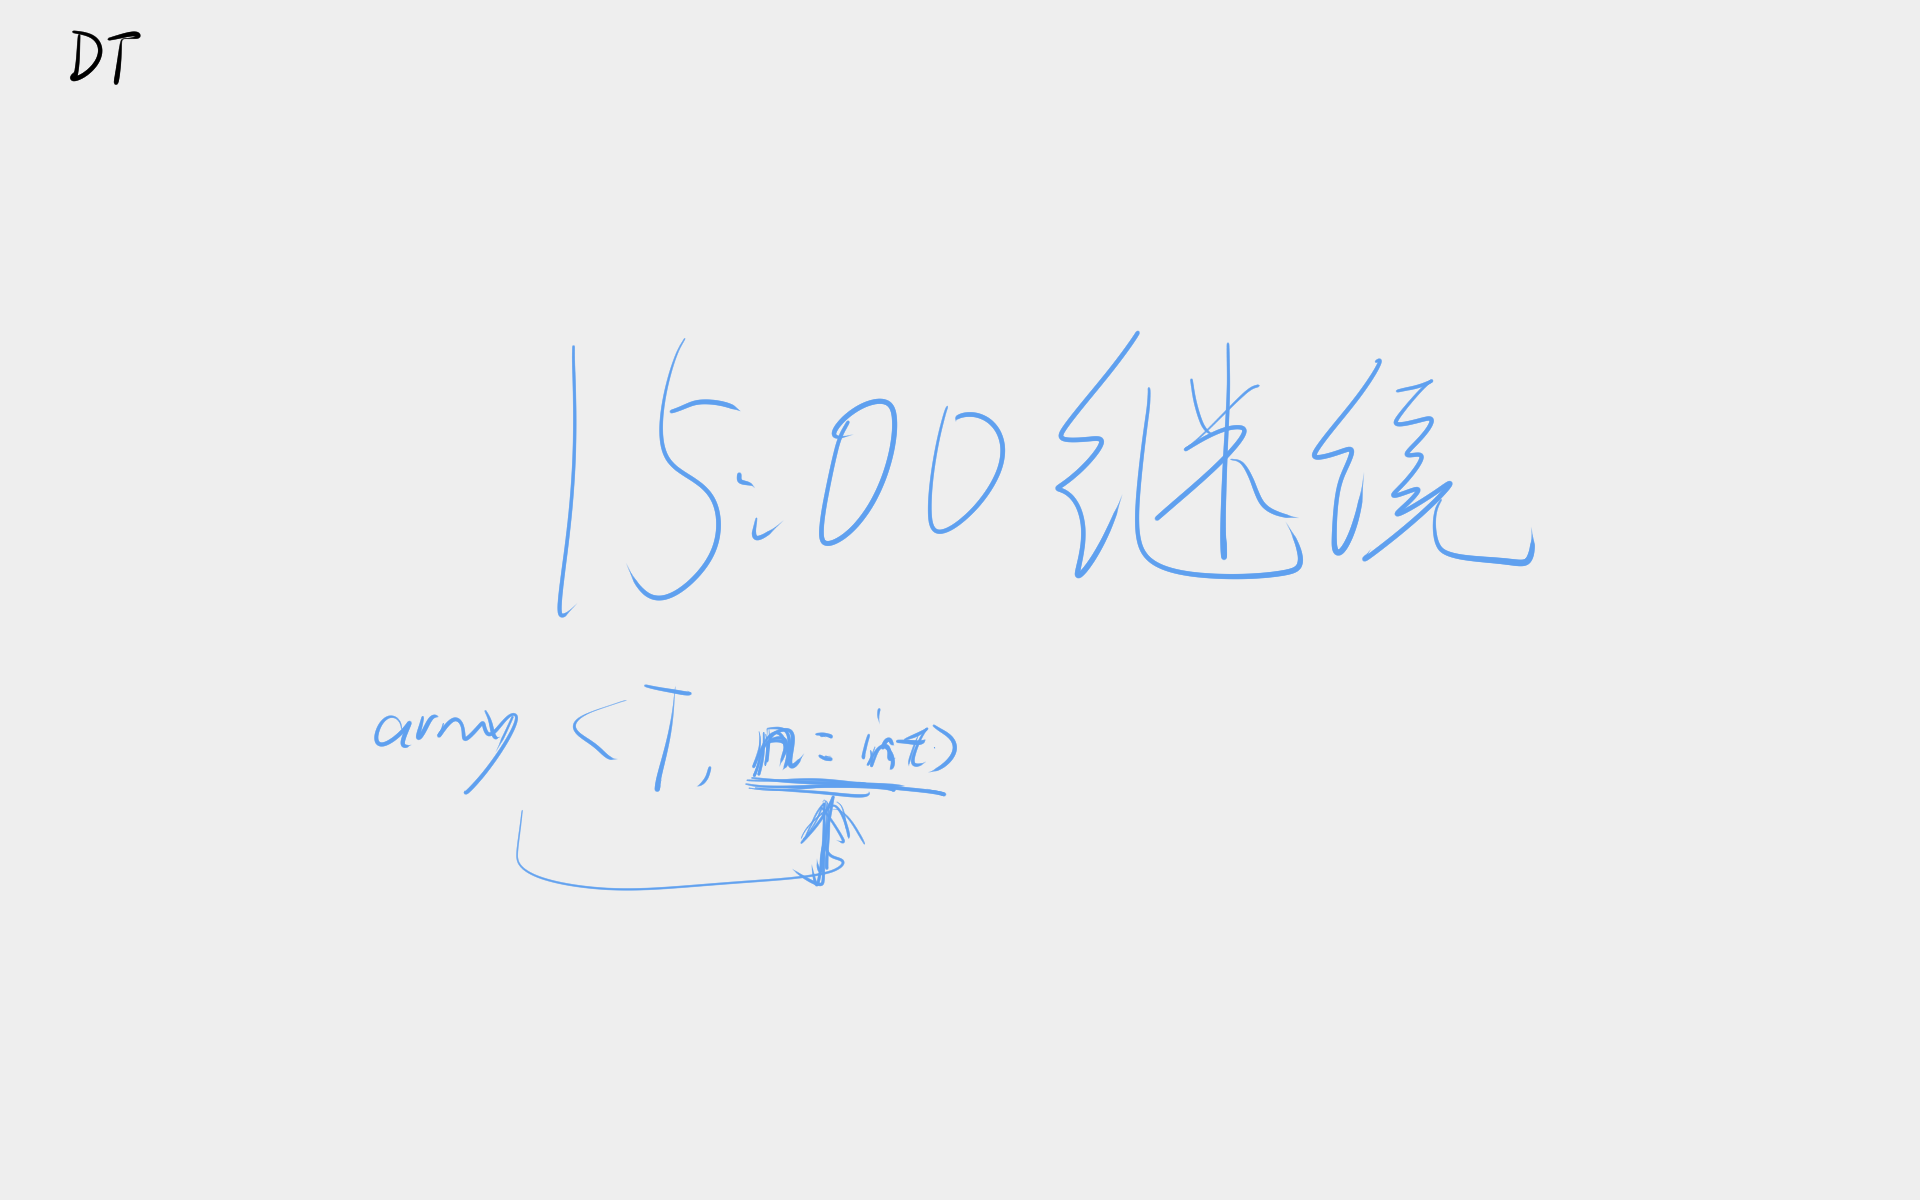 DT
15:00继续
array <T, n : int>